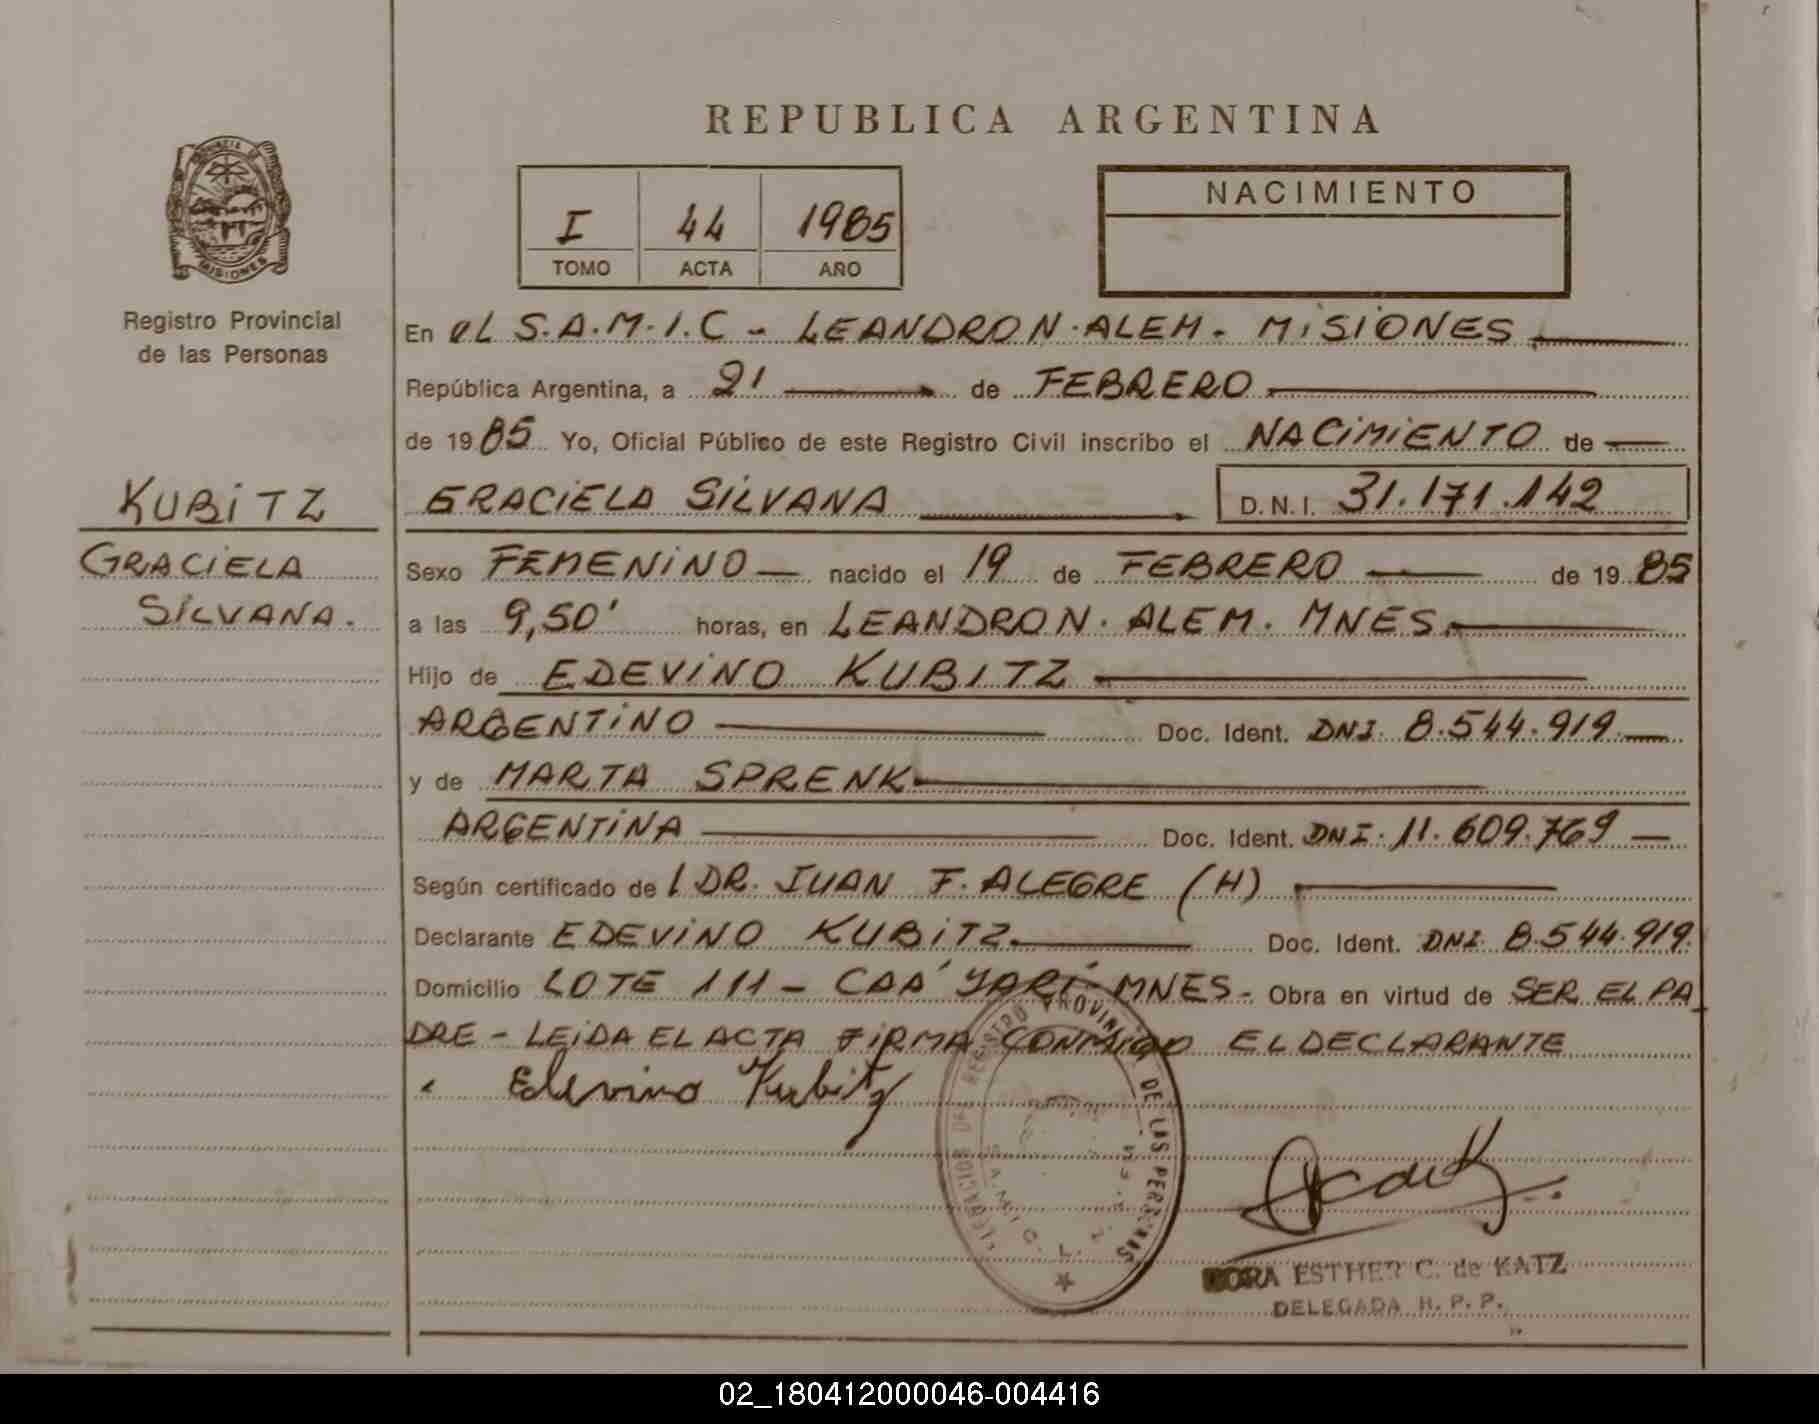 REPUBLICA ARGENTINA
PROVINCIA DE
MISIONES
Registro Provincial
de las Personas
I 44 1985
TOMO ACTA AÑO
NACIMIENTO
En el S.A.M.I.C - LEANDRO N. ALEM. MISIONES
República Argentina, a 21 de FEBRERO
de 1985 Yo, Oficial Público de este Registro Civil inscribo el NACIMIENTO de
KUBITZ
GRACIELA
SILVANA.
GRACIELA SILVANA D.N.I. 31.171.142
Sexo FEMENINO nacido el 19 de FEBRERO de 1985
a las 9,50' horas, en LEANDRO N. ALEM. MNES.
Hijo de EDEVINO KUBITZ
ARGENTINO Doc. Ident. DNI. 8.544.919
y de MARTA SPRENK
ARGENTINA Doc. Ident. DNI. 11.609.769
Según certificado de DR. JUAN F. ALEGRE (H)
Declarante EDEVINO KUBITZ Doc. Ident. DNI 8.544.919.
Domicilio LOTE 111 - CAA' YARÍ - MNES - Obra en virtud de SER EL PA
DRE - LEIDA EL ACTA FIRMA CONMIGO EL DECLARANTE
Edevino Kubitz
REGISTRO PROVINCIAL DE LAS PERSONAS
DORA ESTHER C. de KATZ
DELEGADA R. P. P.
02_180412000046-004416